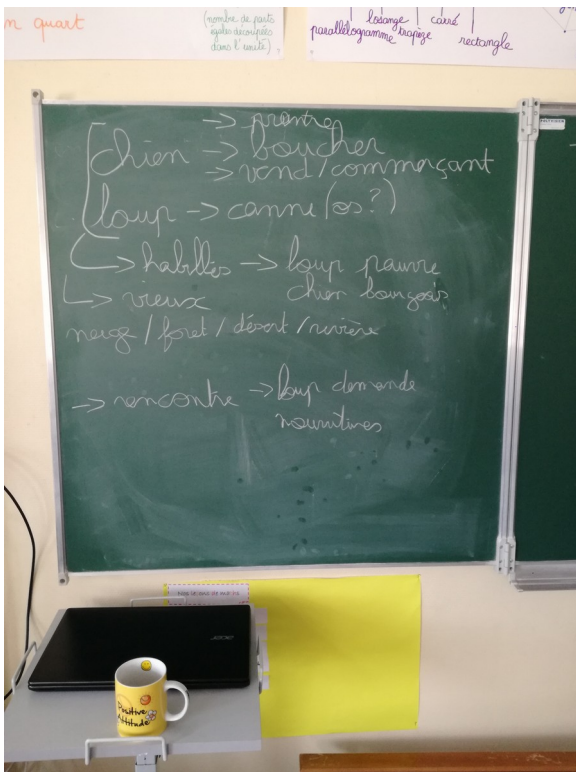 n quart
(nombre de parts
égales découpées
dans l'unité)
losange
carré
parallélogramme
trapèze
rectangle
chien → boucher
→ vend/commerçant
loup → canne (os?)
→ habillés → loup pauvre
chien bourgeois
→ vieux
neige / foret / désert / rivière
→ rencontre → loup demande
nourritures
acer
Positive
Attitude